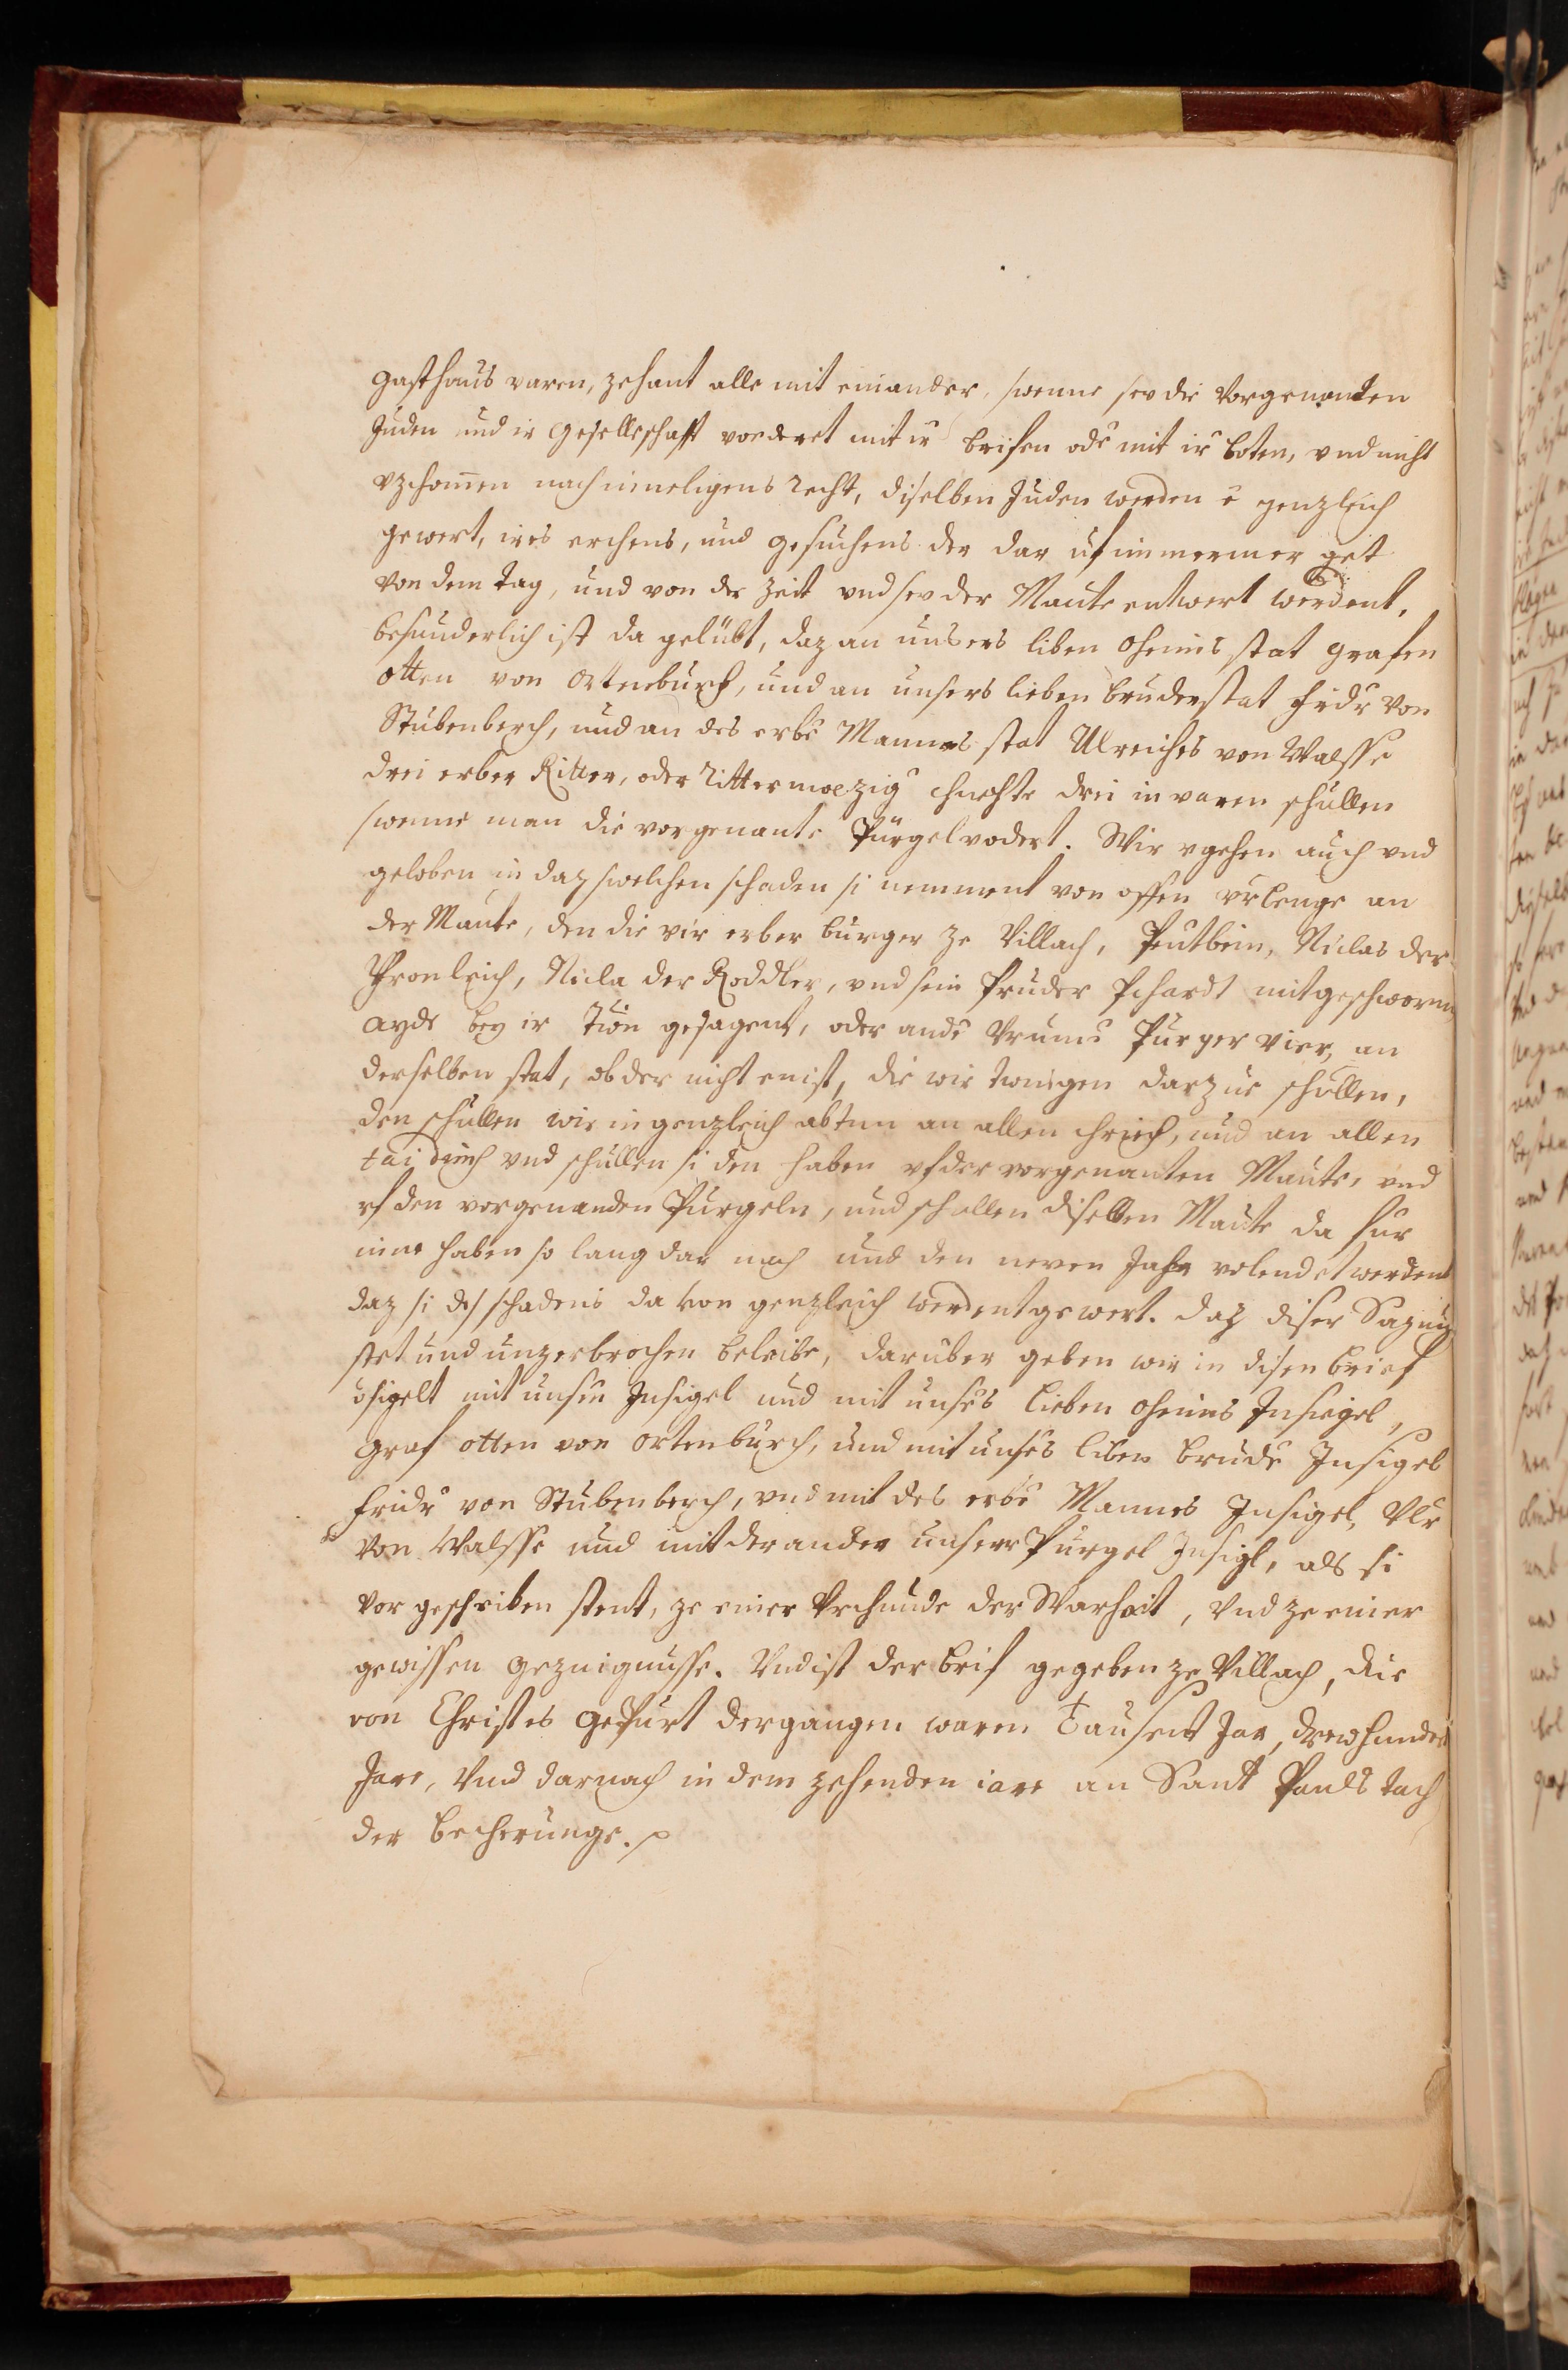 gasthaus varen, zehant alle mit einander, swenne sev die vorgenanten
Juden und ir geselleschaft vorderet mit ir brifen ode mit ir boten, und nicht
vzchomen nach inneligens recht, diselben Juden werden e genzleich
gewert, ires erchens, und gesuchens der dar uf immermer get
von dem tag, und von der zeit und sev der Maute entwert werdent,
besunderlich ist da gelübt, daz an unsers liben ohems stat grafen
otten von Ortenburch, und an unsers lieben bruder stat fridr von
Stubenberch, und an des erbe Mannes stat Ulreiches von Walsse
drei erber Ritter, oder rittermoezig chnehte drei in varen schullen
swenne man die vorgenante Pürgel vodert. Wir vgehen auch und
geloben in daz swelchen schaden si nemment von offen urlenge an
der Maute, den die vir erber burger ze Villach, Peutbein, Niclas der
Pronleich, Nicla der Roddler, und sein Pruder Pchardt mit geschworn
ayde bey ir Triwn gesagent, oder ande Vrume Purger vier, an
derselben stat, ob der nicht enist, die wir twingen darzue schullen,
den schullen wir in genzleich abtun an allen chriech, und an allen
taidinch und schullen si den haben uf der vorgenanten Maute, und
uf den vorgenanden Purgeln, und schullen diselben Maute da fur
inne haben so lang dar nach und den neven Jahr volendet werdent
daz si des schadens da von genzleich werdent gewert. daz diser Sazung
stet und unzerbrochen beleibe, daruber geben wir in disen brief
vsigelt mit unsen Insigel und mit unses lieben oheims Insiegel,
graf otten von Ortenburch, und mit unses liben brude Insigel
fridr von Stubenberch, und mit des erbe Mannes Insigel, Vlr
von Walsse und mit der ander unserr Purgel Insigl, als si
vor geschriben stent, ze einer Vrchunde der Warhait, Und ze einer
gewissen gezuignusse. Und ist der brif gegeben ze Villach, die
von Christes gepurt dergangen waren Tausent Jar, drewhundert
Jare, Und darnach in dem zehenden iare an Sant Pauls tach
der becherunge.